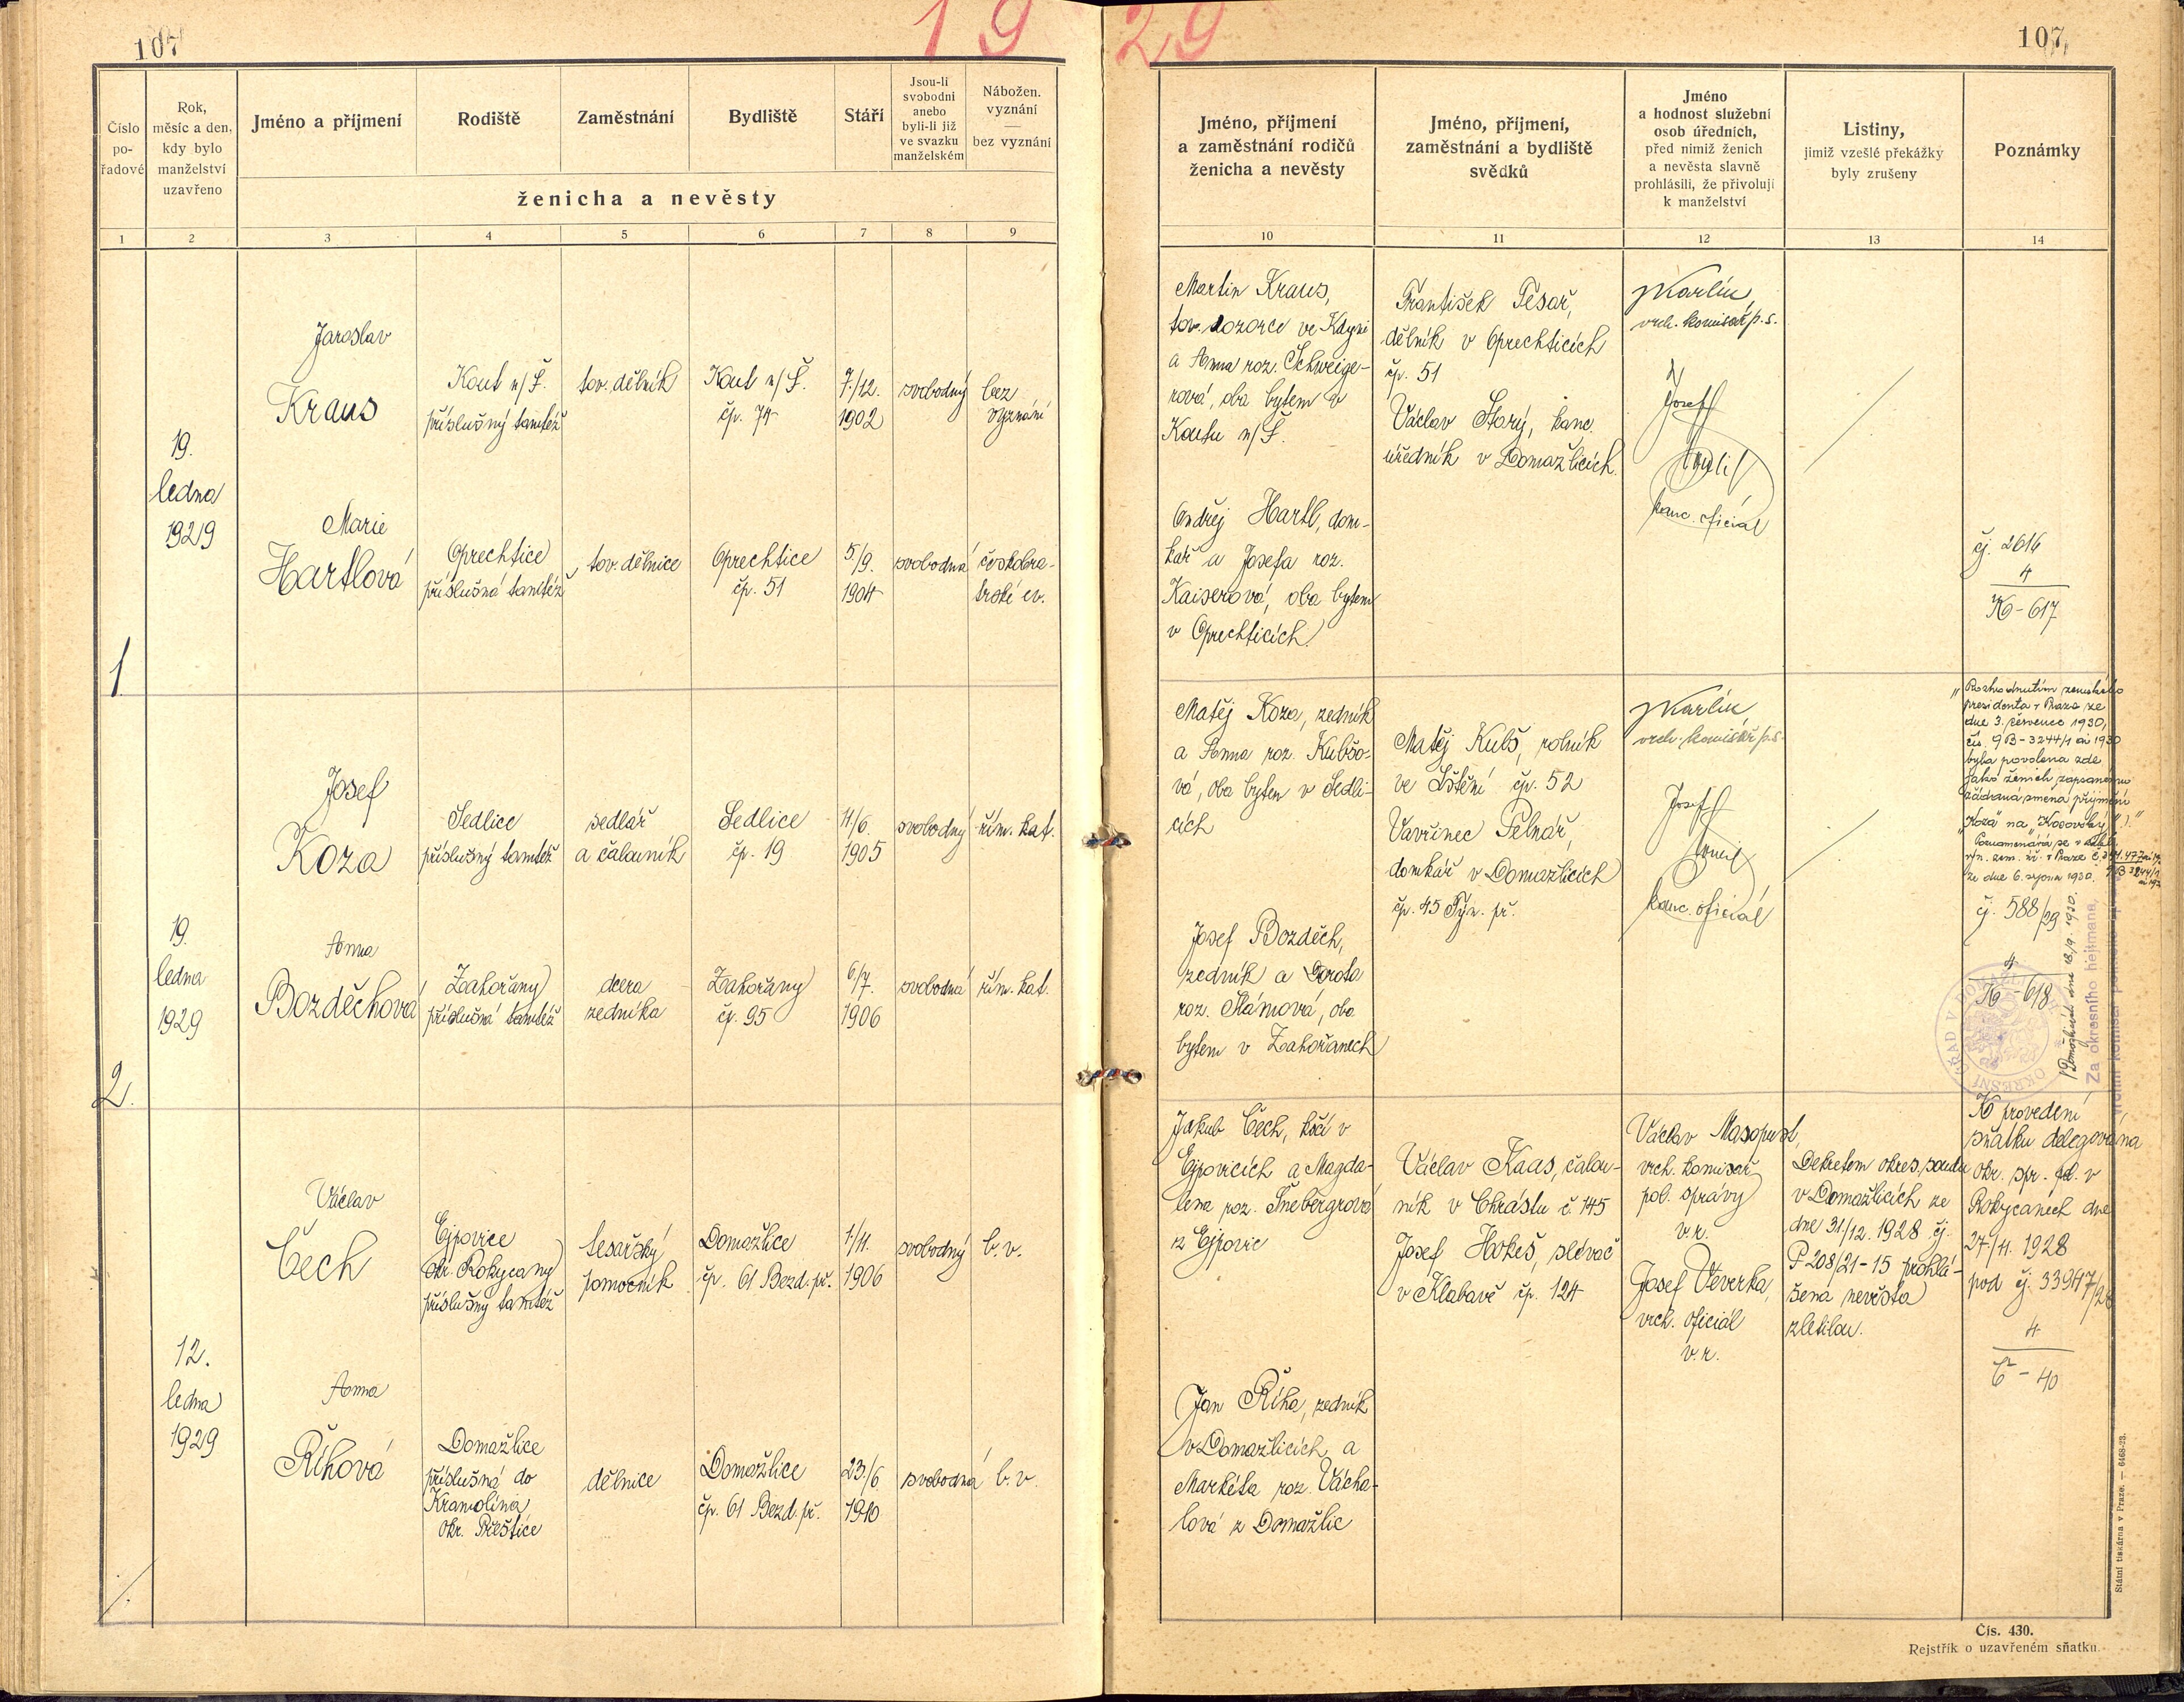 107
19
29
107
Číslo
po-
řadové
Rok,
měsíc a den,
kdy bylo
manželství
uzavřeno
Jméno a příjmení
Rodiště
Zaměstnání
Bydliště
Stáří
Jsou-li
svobodni
anebo
byli-li již
ve svazku
manželském
Nábožen.
vyznání
—
bez vyznání
ženicha a nevěsty
1 2 3 4 5 6 7 8 9
Jméno, příjmení
a zaměstnání rodičů
ženicha a nevěsty
Jméno, příjmení,
zaměstnání a bydliště
svědků
Jméno
a hodnost služební
osob úředních,
před nimiž ženich
a nevěsta slavně
prohlásili, že přivolují
k manželství
Listiny,
jimiž vzešlé překážky
byly zrušeny
Poznámky
10 11 12 13 14
1
19.
ledna
1929
Jaroslav
Kraus
Kout n/Š.
příslušný tamtéž
tov. dělník
Kout n/Š.
čp. 74
7./12.
1902
svobodný
bez
vyznání
Marie
Hartlová
Oprechtice
příslušná tamtéž
tov. dělnice
Oprechtice
čp. 51
5/9.
1904
svobodná
českobra-
trské ev.
Martin Kraus,
tov. dozorce ve Kdyni
a Anna roz. Schweige-
rová, oba bytem v
Koutu n/Š.
Ondřej Hartl, dom-
kář a Josefa roz.
Kaiserová, oba bytem
v Oprechticích.
František Tesař,
dělník v Oprechticích
čp. 51
Václav Starý, kanc.
úředník v Domažlicích.
Karlík,
vrch. komisař p. s.
Josef
kanc. oficiál
čj. 2616
4
K-617
2.
19.
ledna
1929
Josef
Koza
Sedlice
příslušný tamtéž
sedlář
a čalouník
Sedlice
čp. 19
11/6.
1905
svobodný
řím. kat.
Anna
Bozděchová
Zahořany
příslušná tamtéž
dcera
zedníka
Zahořany
čp. 95
6/7.
1906
svobodná
řím. kat.
Matěj Koza, zedník
a Anna roz. Kubšo-
vá, oba bytem v Sedli-
cích
Josef Bozděch,
zedník a Dorota
roz. Slámová, oba
bytem v Zahořanech
Matěj Kubš, rolník
ve Lštění čp. 52
Vavřinec Pelnář,
domkář v Domažlicích
čp. 45 Týn. př.
Karlík,
vrch. komisař p. s.
Josef
kanc. oficiál
„Rozhodnutím zemského
presidenta v Praze ze
dne 3. července 1930,
čís. 9B-3244/1 ai 1930
byla povolena zde
jako ženich zapsanému
žádaná změna příjmení
„Koza" na „Kosovský"."
Poznamenává se v
zem. úř. v Praze
ze dne 6. srpna 1930.
čj. 588/29
4
K-618
Domažlice dne 13/9. 1930.
Za okresního hejtmana,
12.
ledna
1929
Václav
Čech
Ejpovice
okr. Rokycany
příslušný tamtéž
tesařský
pomocník
Domažlice
čp. 61 Bezd. př.
1/11.
1906
svobodný
b. v.
Anna
Říhová
Domažlice
příslušná do
Kramolína
okr. Přeštice
dělnice
Domažlice
čp. 61 Bezd. př.
23./6
1910
svobodná
b. v.
Jakub Čech, kočí v
Ejpovicích a Magda-
lena roz. Šnebergrová
z Ejpovic
Jan Říha, zedník
v Domažlicích a
Markéta roz. Vácha-
lová z Domažlic
Václav Kaas, čalou-
ník v Chrástu č. 145
Josef Hokeš, slévač
v Klabavě čp. 124
Václav Masopust,
vrch. komisař
pol. správy
v. r.
Josef Veverka,
vrch. oficiál
v. r.
Dekretem okres. soudu
v Domažlicích ze
dne 31./12. 1928 čj.
P 208/21-15 prohlá-
šena nevěsta
zletilou.
K provedení
sňatku delegována
okr. spr. pol. v
Rokycanech dne
27/11. 1928
pod čj. 33947/28
4
Č-40
Státní tiskárna v Praze. — 6468-23.
Čís. 430.
Rejstřík o uzavřeném sňatku